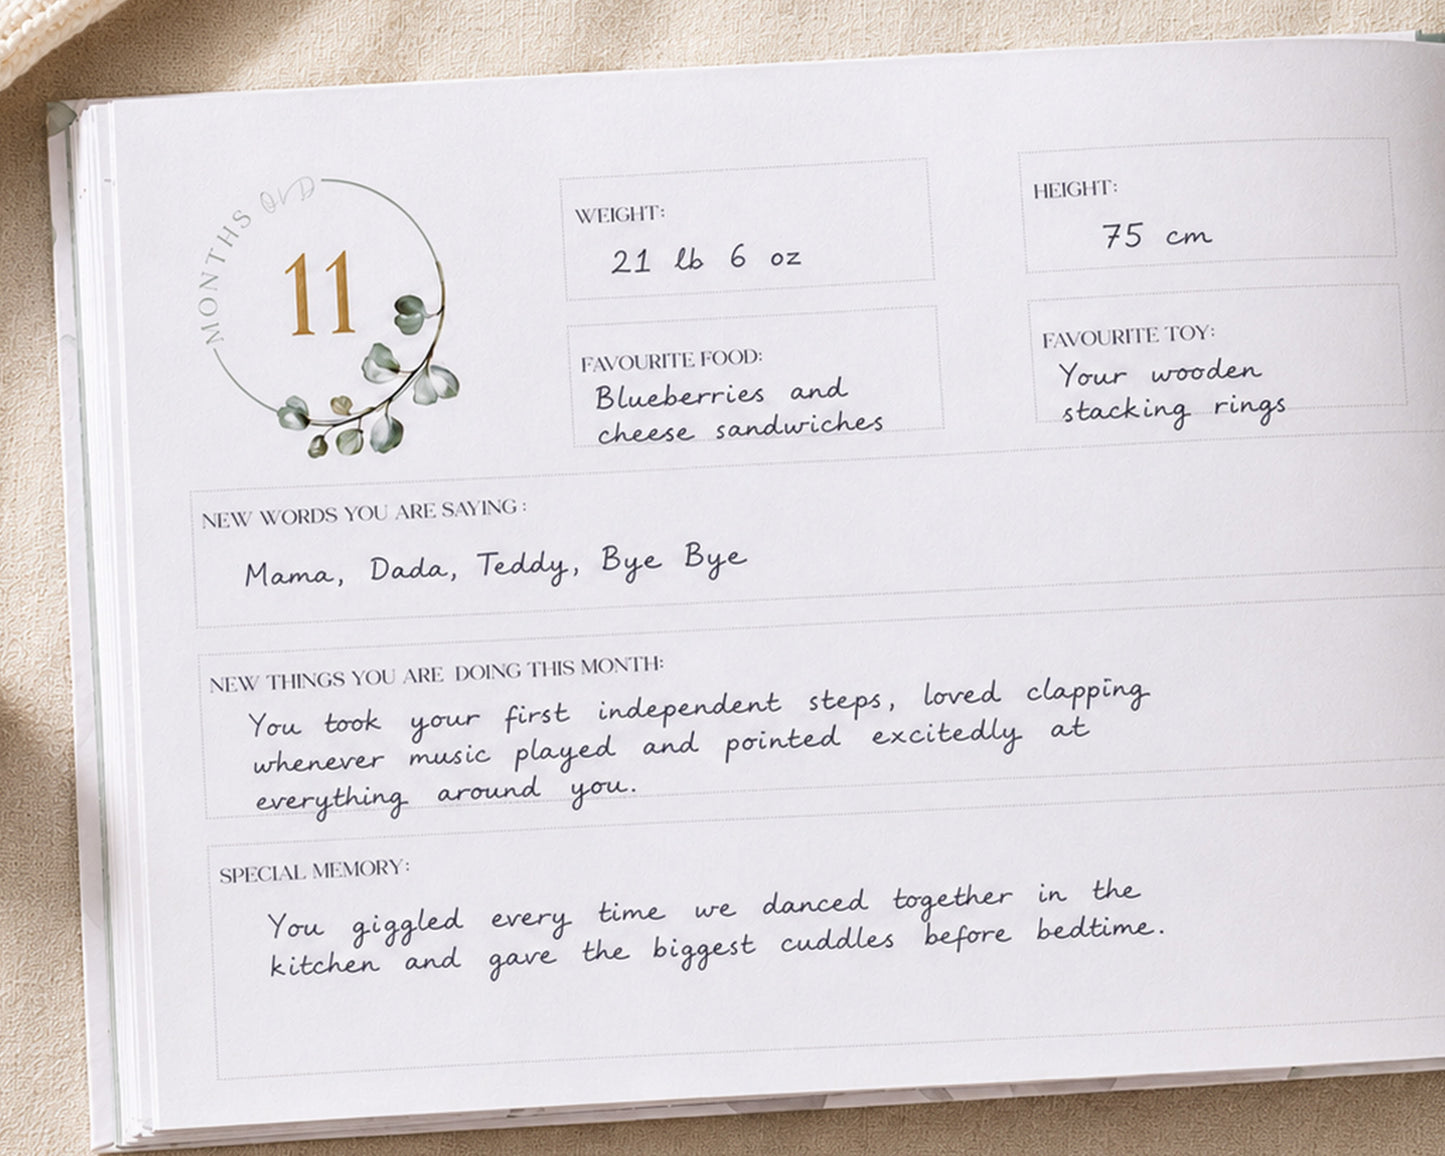 MONTHS OLD
11
WEIGHT:
21 lb 6 oz
HEIGHT:
75 cm
FAVOURITE FOOD:
Blueberries and
cheese sandwiches
FAVOURITE TOY:
Your wooden
stacking rings
NEW WORDS YOU ARE SAYING :
Mama, Dada, Teddy, Bye Bye
NEW THINGS YOU ARE DOING THIS MONTH:
You took your first independent steps, loved clapping
whenever music played and pointed excitedly at
everything around you.
SPECIAL MEMORY:
You giggled every time we danced together in the
kitchen and gave the biggest cuddles before bedtime.